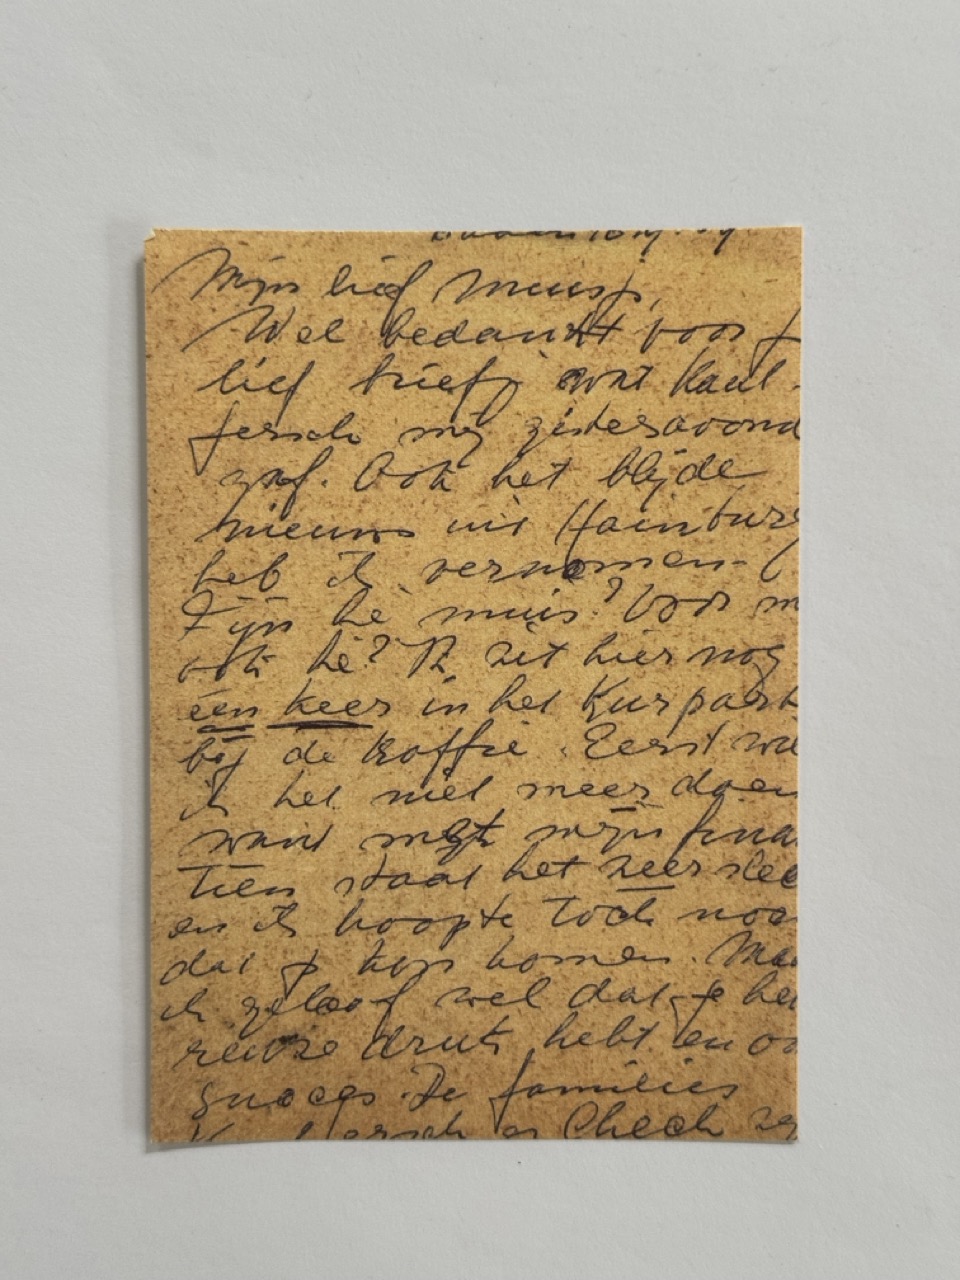 Mijn lief muisje,
Wel bedankt voor j
lief briefje wat Kaul-
fersch mij gisteravond
gaf. Ook het blijde
nieuws uit Hamburg
heb ik vernomen.
Fijn hè muis? Voor m
ook hè? Ik zit hier nog
één keer in het Kurpark
bij de koffie. Eerst wil
ik het niet meer doen
want met mijn finan
tiën staat het zeer slec
en ik hoopte toch noo
dat je kon komen. Maa
ik geloof wel dat je he
reuze druk hebt en oo
succes. De families
Check